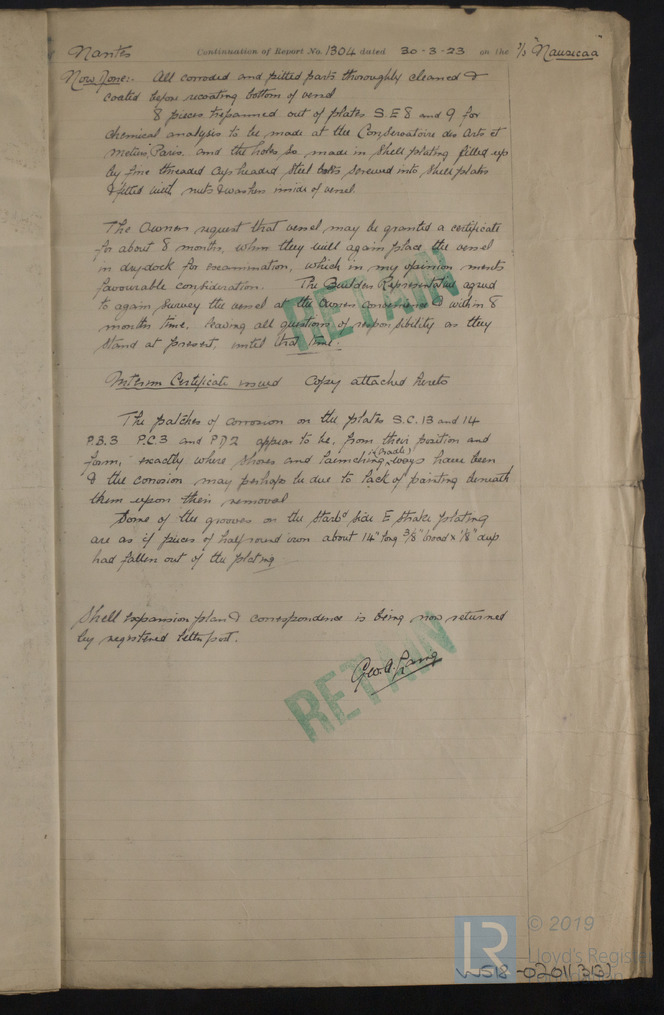 Nantes Continuation of Report No. 1304 dated 30-3-23 on the S/S "Nausicaa"
Now Done:- All corroded and pitted parts thoroughly cleaned &
coated before recoating bottom of vessel
8 pieces trepanned out of plates S.E 8 and 9 for
chemical analysis to be made at the Conservatoire des Arts et
Metiers Paris. and the holes so made in shell plating filled up
by fine threaded cup headed steel bolts screwed into shell plates
& fitted with nuts & washers inside of vessel.
The Owners request that vessel may be granted a certificate
for about 8 months, when they will again place the vessel
in drydock for examination, which in my opinion merits
favourable consideration. The Builders Representative agreed
to again survey the vessel at the Owners convenience & within 8
months time, leaving all questions of responsibility as they
stand at present, until that time.
Interim Certificate issued Copy attached hereto
The patches of corrosion on the plates S.C. 13 and 14
P.B.3 P.C.3 and P.D2 appear to be, from their position and
form, exactly where shores and launching (cradle) ways have been
& the corrosion may perhaps be due to lack of painting beneath
them upon their removal
Some of the grooves on the starbd side E strake plating
are as if pieces of half round iron about 14" long 3/8" broad x 1/8" deep
had fallen out of the plating
Shell expansion plan & correspondence is being now returned
by registered letter post.
Geo. A. Laing
RETAIN
RETAIN
© 2019
LR
Lloyd's Register
Foundation
W518-0201(313)